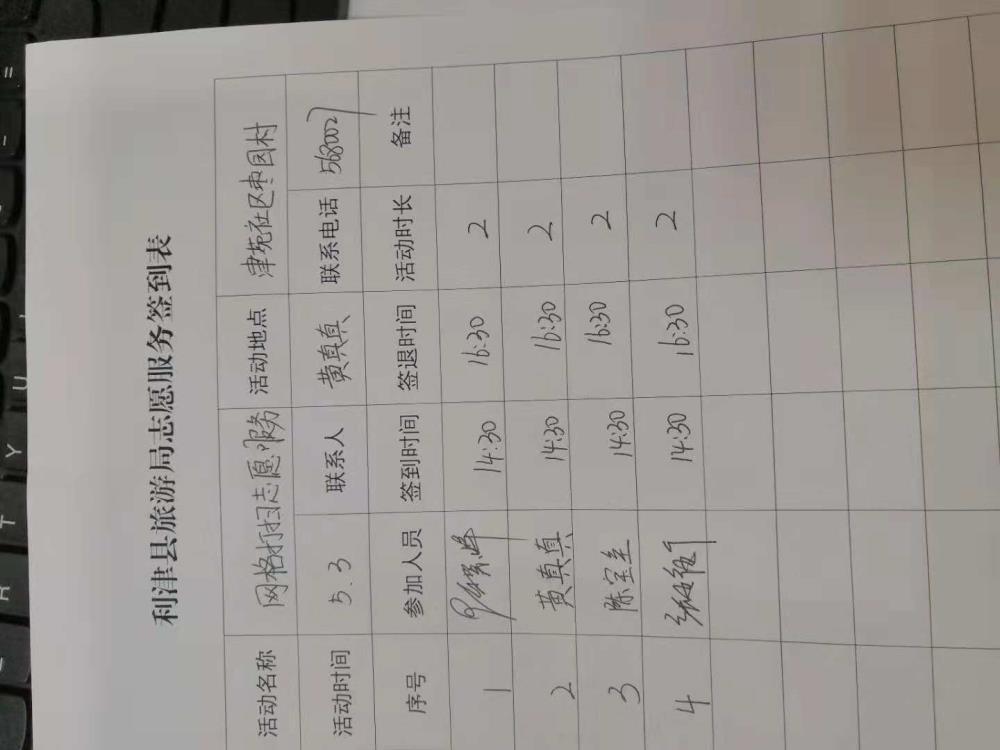 利津县旅游局志愿服务签到表
活动名称 网格打扫志愿服务 活动地点 津苑社区枣园村
活动时间 5.3 联系人 黄真真 联系电话 5680021
序号 参加人员 签到时间 签退时间 活动时长 备注
1 14:30 16:30 2
2 黄真真 14:30 16:30 2
3 陈宝圣 14:30 16:30 2
4 14:30 16:30 2